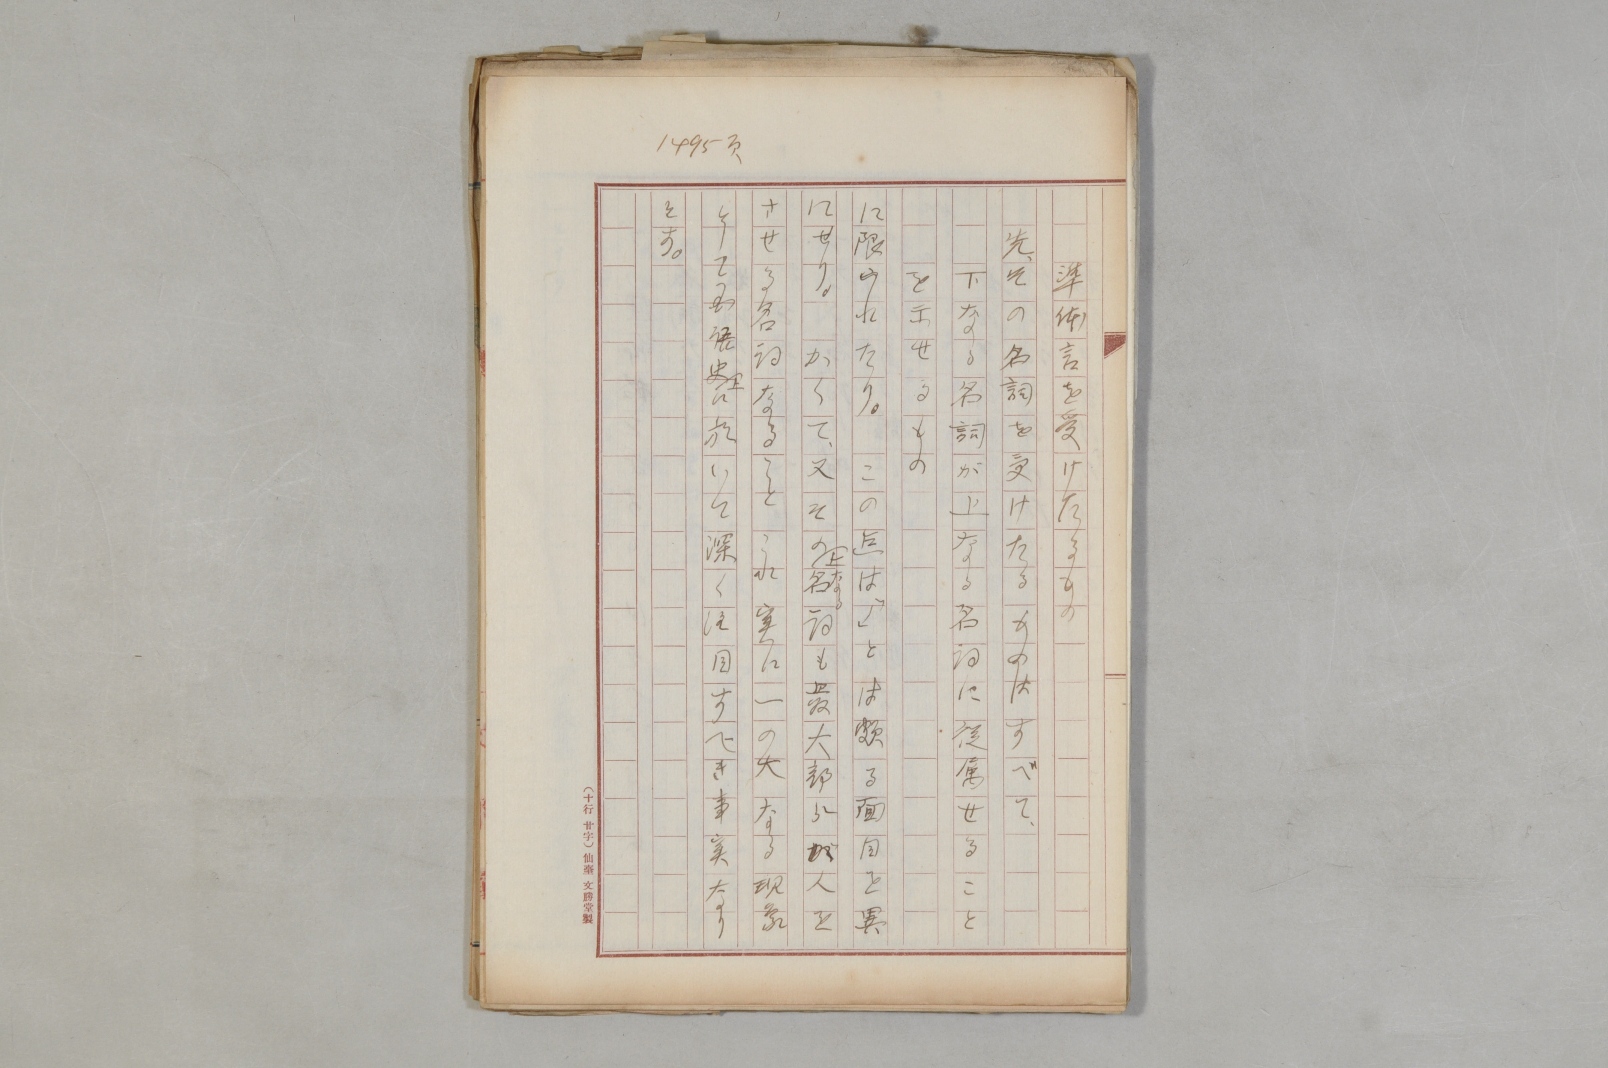 1495頁
準体言を受けたるもの
先、その名詞を受けたるものはすべて、
下なる名詞が上なる名詞に従属せること
を示せるもの
に限られたり。 この点は「が」とは頗る面目を異
にせり。 かくて、又その上なる名詞も最大部分が人を
させる名詞なること これ実に一の大なる現象
にして国語史上に於いて深く注目すべき事実なり
とす。
(十行 廿字) 仙臺 文勝堂製